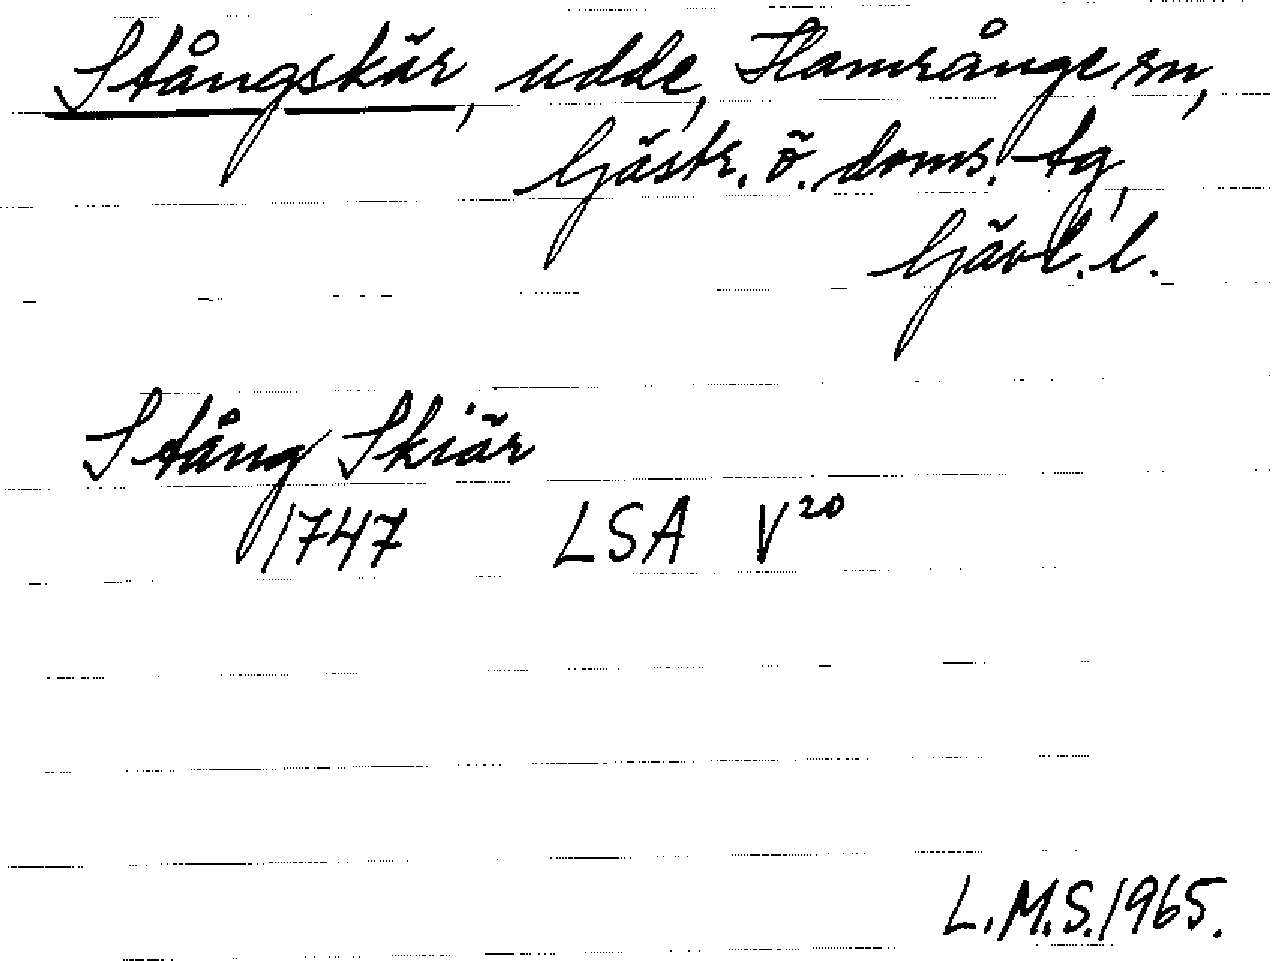 Stångskär, udde, Hamrånge sn,
Gästr. ö. doms.-tg,
Gävl. l.
Stång Skiär
1747 LSA V20
L.M.S. 1965.